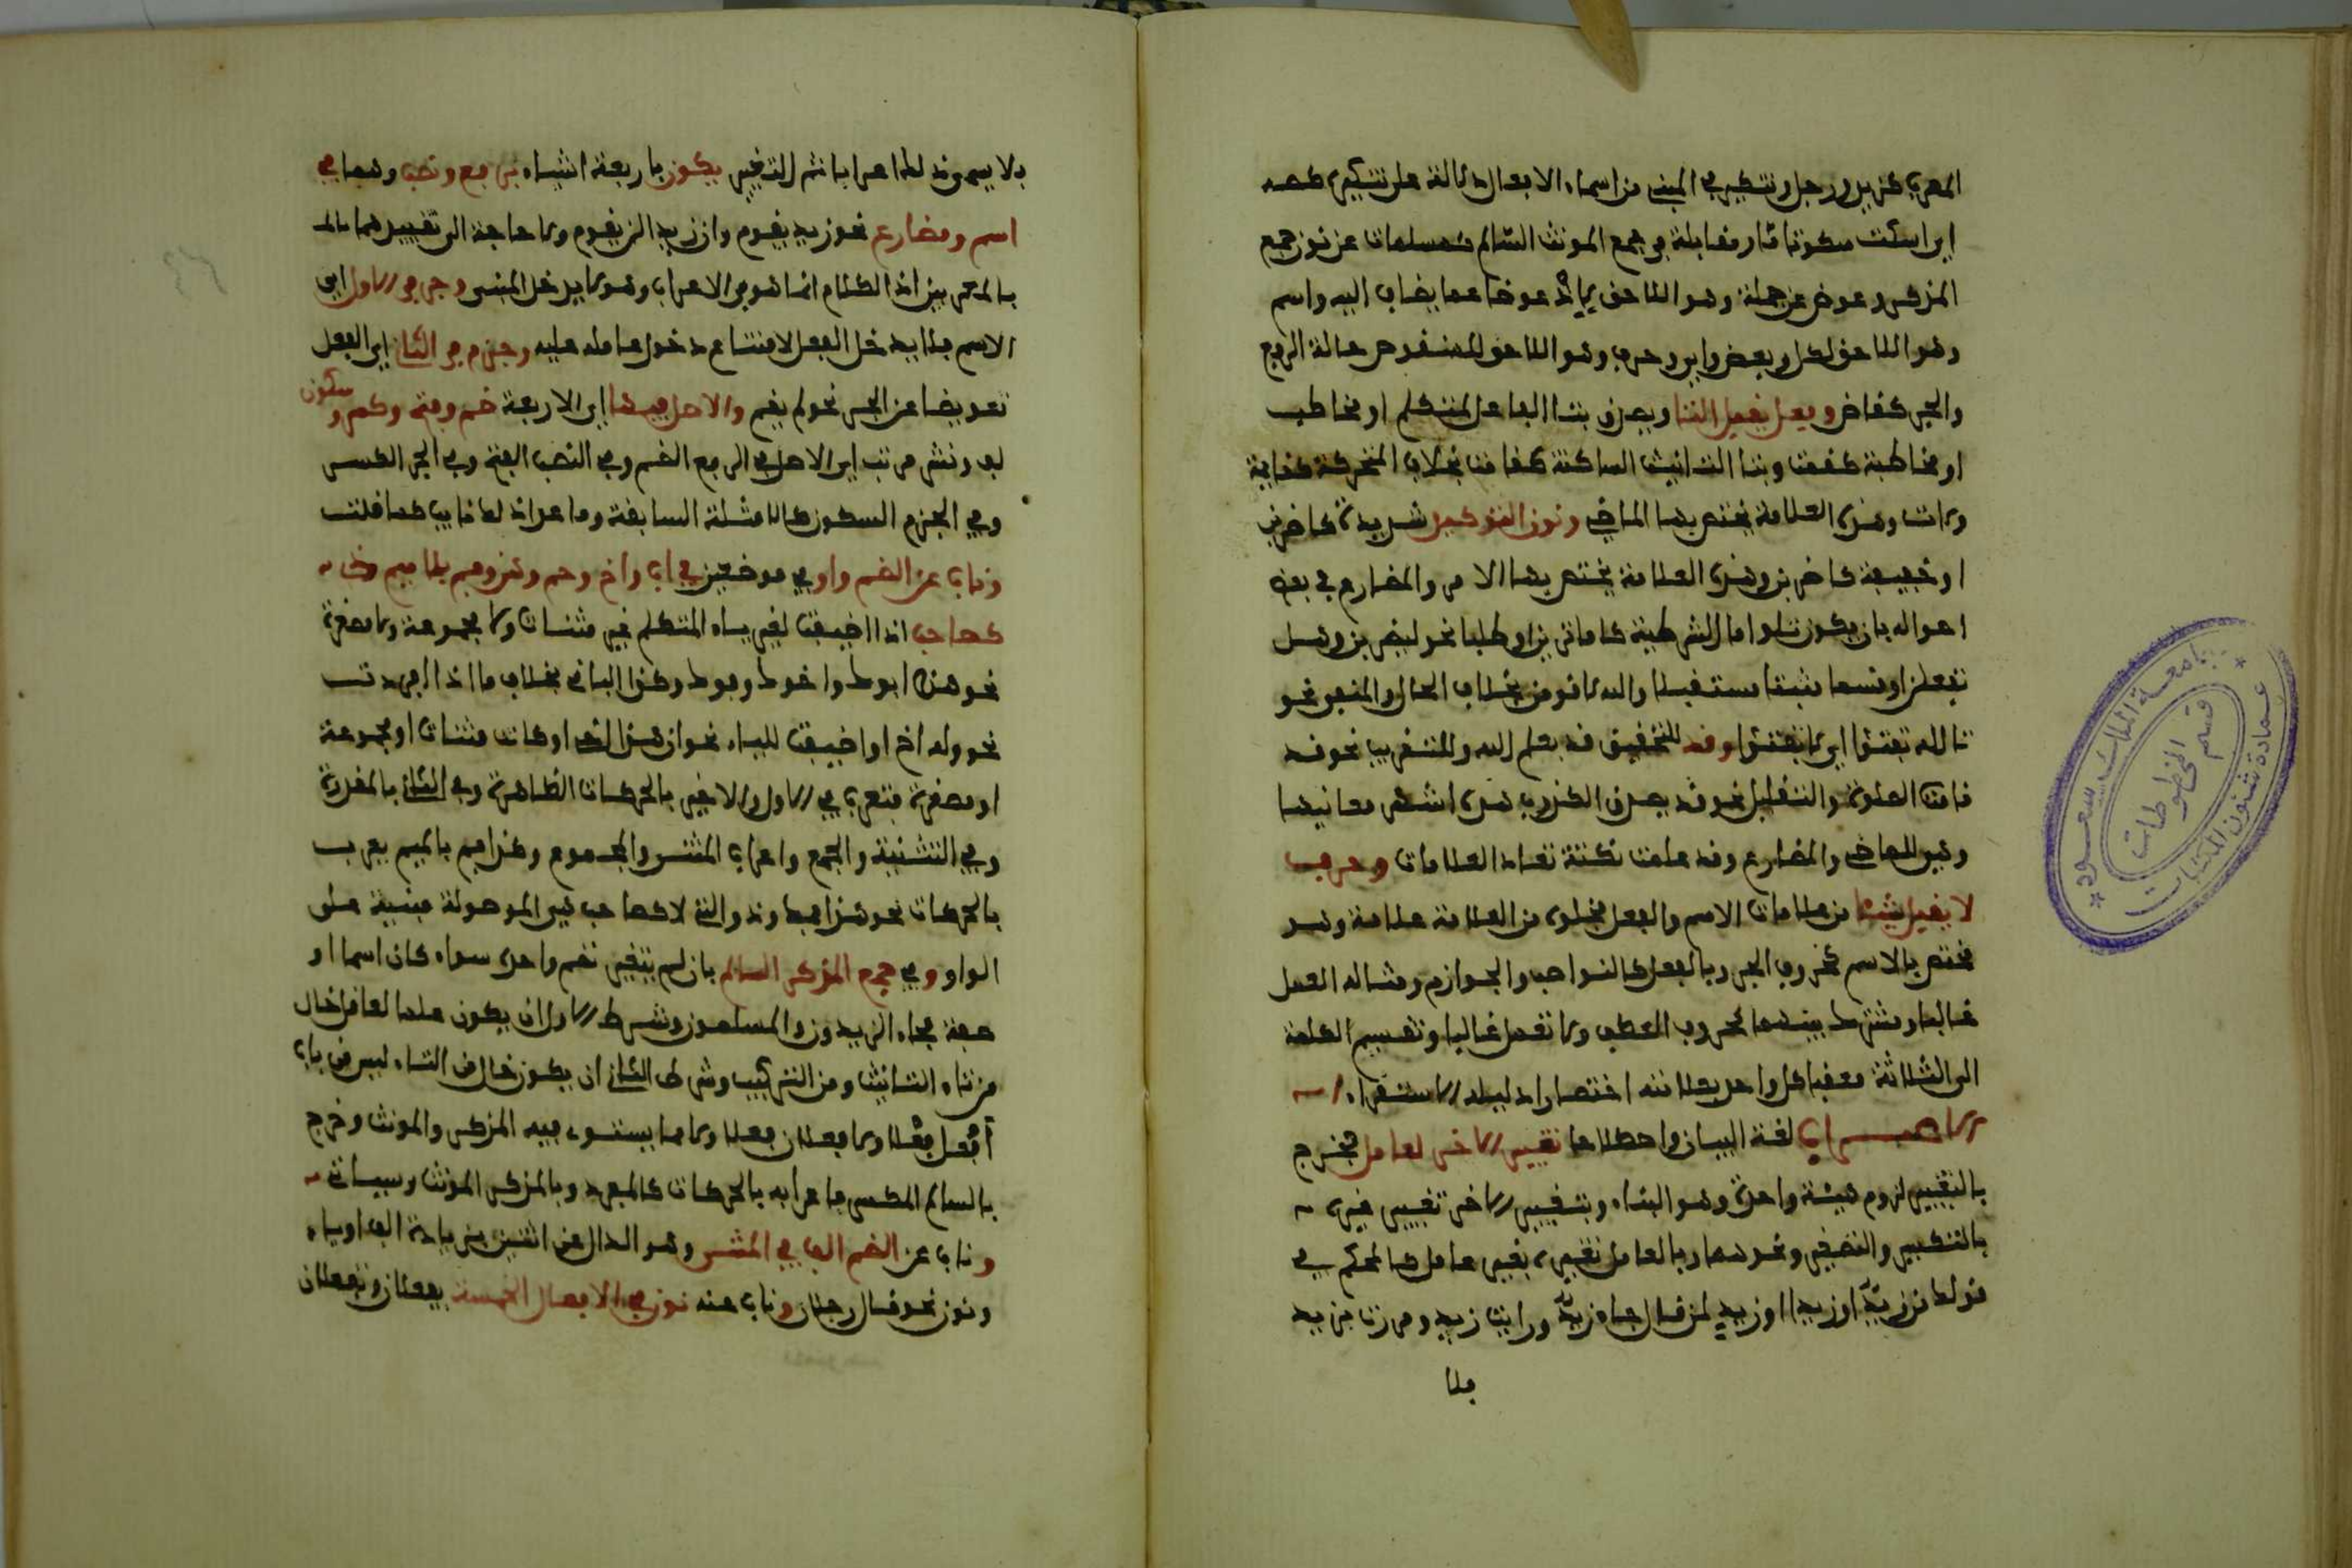 المعرب كزيد ورجل وتنكير في المبني من اسماء الافعال دلالة على تنكيره كصه
اي اسكت سكوتا ما او مقابلة في جمع المونث السالم كمسلمات عن نون جمع
المذكر وعوض عن جملة وهو اللاحق لاذ عوضا عما يضاف اليه واسم
وهو اللاحق لكل وبعض واي وحرف وهو اللاحق للمنقوص حالة الرفع
والجر كقاض وفعل يقبل التا ويعرف بتا الفاعل لمتكلم او مخاطب
او مخاطبة كقمت وبتا التانيث الساكنة كقامت بخلاف المتحركة كقايمة
ولات وهذه العلامة يختص بها الماضي ونون التوكيد شديدة كاضربن
او خفيفة كاضربن وهذه العلامة يختص بها الامر والمضارع في بعض
احواله بان يكون تلو اما الشرطية كاما ترين او طلبا نحو ليضربن وهل
تفعلن او قسما مثبتا مستقبلا والله لاقومن بخلاف الحال والمنفي نحو
تالله تفتؤا اي لا تفتؤا وقد للتحقيق قد يعلم الله والتقريب نحو قد
قامت الصلوة والتقليل نحو قد يصدق الكذوب هذه اشهر معانيها
وهي للماضي والمضارع وقد علمت نكتة تعداد العلامات وحرف
لا يقبل شيئا من علامات الاسم والفعل فخلوه من العلامة علامة وهو
مختص بالاسم كحروف الجر وبالفعل كالنواصب والجوازم ومثاله العمل
غالبا ومشترك بينهما كحروف العطف ولا تعمل غاليا وتقسيم الكلمة
الى الثلاثة معقبا كل واحد بعلامته اختصارا دليله الاستقراء
الاعراب لغة البيان واصطلاحا تغيير الاخر لعامل فخرج
بالتغيير لزوم هيئة واحدة وهو البناء وبتغيير الاخر تغيير غيره
بالتكبير والتصغير ونحوهما وبالعامل تغييره بغير عامل كالمحكي في
قولك من زيد او زيدا او زيد لمن قال جاء زيد ورايت زيد ومررت بزيد
فلا
فلا يسمى ذلك اعرابا ثم التغيير يكون باربعة اشياء برفع ونصب وهما في
اسم ومضارع نحو زيد يقوم وان زيدا لن يقوم ولا حاجة الى تقييدهما
بالمعربين اذ الكلام انما هو في الاعراب وهو لا يدخل المبني وجر في الاول اي
الاسم فلا يدخل الفعل لامتناع دخول عامله عليه وجزم في الثاني اي الفعل
تعويضا عن الجر نحو لم يقم والاصل فيها اي الاربعة ضم وفتح وكسر وسكون
لف ونشر مرتب اي الاصل في الرفع الضم وفي النصب الفتح وفي الجر الكسر
وفي الجزم السكون كالامثلة السابقة وما عدا ذلك نايب كما قلت
وناب عن الضم واو في موضعين في اب واخ وحم وهن وفم بلا ميم وذي
كصاحب اذا اضيفت لغير ياء المتكلم غير مثناة ولا مجموعة ولا مصغرة
نحو هذا ابوك واخوك وفوك وكذا الباقي بخلاف ما اذا افردت
نحو وله اخ او اضيفت للياء نحو ان هذا اخي او كانت مثناة او مجموعة
او مصغرة فتعرب في الاول والاخير بالحركات الظاهرة وفي الثاني بالمقدرة
وفي التثنية والجمع واعراب المثنى والمجموع وكذا فم بالميم يعرب
بالحركات نحو هذا فمك وذو التي لا كصاحب هي الموصولة مبنية على
الواو وفي جمع المذكر السالم بان لم يتغير نظم واحده سواء كان اسما او
صفة كجاء الزيدون والمسلمون وشرط الاول ان يكون علما لعاقل خال
من تاء التانيث ومن التركيب وشرط الثاني ان يكون خال من التاء ليس من باب
افعل فعلا ولا فعلان فعلا ولا مما يستوي فيه المذكر والمونث وخرج
بالسالم المكسر فاعرابه بالحركات كالمفرد وبالمذكر المونث وسياتي
وناب عن الضم الف في المثنى وهو الدال على اثنين بزيادة الف او ياء
ونون نحو قال رجلان وناب عنه نون في الافعال الخمسة يفعلان وتفعلان
جامعة الملك سعود
عمادة شئون المكتبات
قسم المخطوطات